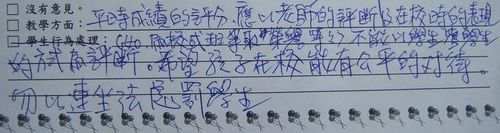 □ 沒有意見。
□ 教學方面：平時成績的評分，應以老師的評斷及在校時的表現
□ 學生行為處理：為校或班爭取榮譽 不能以學生與學生
的方式為評斷。希望孩子在校能有公平的對待。
勿以連坐法處罰學生